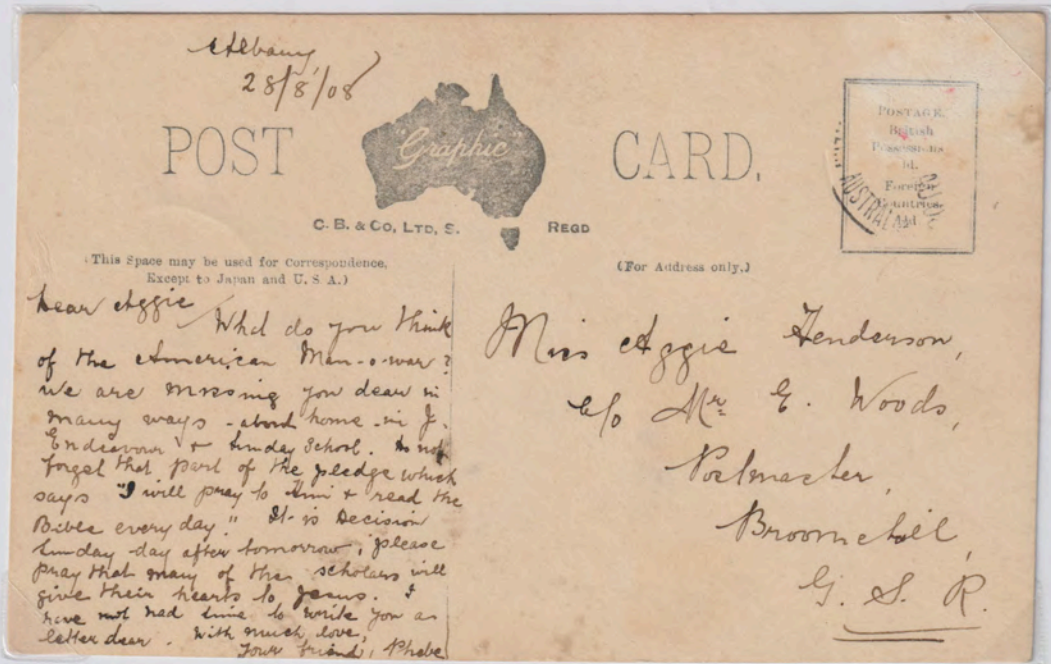 Albany,
28/8/08
POST CARD.
"Graphic"
C. B. & CO, LTD, S. REGD
POSTAGE.
British
Possessions
1d.
Foreign
Countries.
AUSTRALIA
(This Space may be used for Correspondence,
Except to Japan and U. S A.)
(For Address only.)
Dear Aggie
What do you think
of the American Man-o-war?
We are missing you dear in
many ways - about home - in J.
Endeavour & Sunday School. Do not
forget that part of the pledge which
says "I will pray to Him & read the
Bible every day." It is Decision
Sunday day after tomorrow, please
pray that many of the scholars will
give their hearts to Jesus. I
have not had time to write you a
letter dear. With much love,
Your friend, Phebe
Miss Aggie Henderson,
c/o Mr E. Woods,
Postmaster,
Broomehill,
G. S. R.